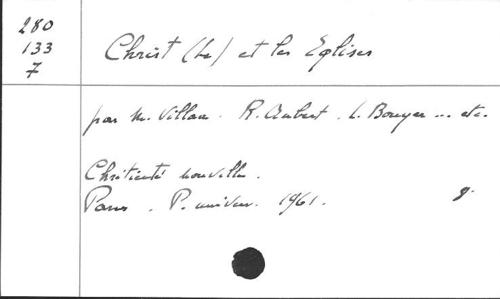 280
133
7
Christ (Le) et les Eglises
par M. Villain. R. Aubert. L. Bouyer ... etc.
Chrétienté nouvelle.
Paris. P. univer. 1961. 8°